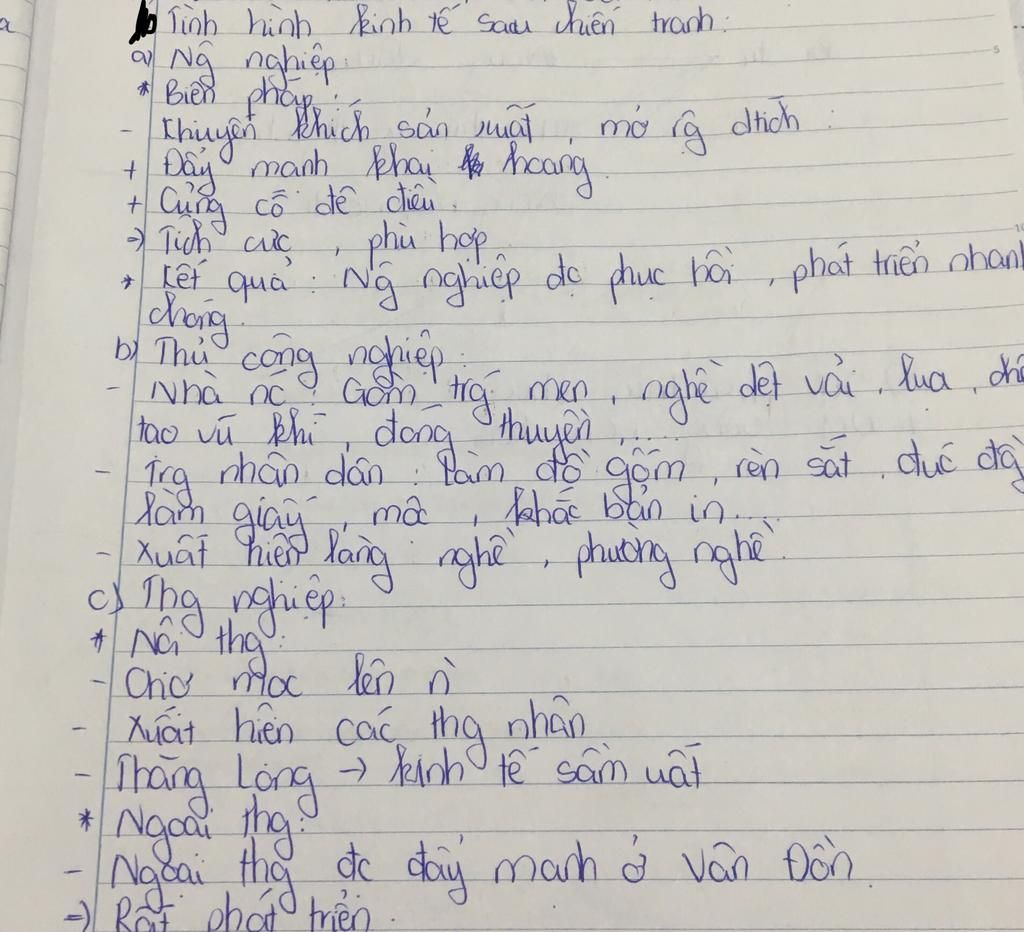 Tình hình kinh tế sau chiến tranh:
a) Ng̃ nghiệp:
* Biện pháp:
- Khuyến khích sản xuất, mở rg̣ dtích:
+ Đẩy mạnh khai hoang.
+ Củng cố đê điều.
=) Tích cực, phù hợp
* Kết quả: Ng̃ nghiệp đc phục hồi, phát triển nhanh
chóng.
b) Thủ công nghiệp:
- Nhà nc: Gốm trg men, nghề dệt vải, lụa, chế
tạo vũ khí, đóng thuyền,...
- Trg nhân dân: Làm đồ gốm, rèn sắt, đúc đg̀
làm giấy, mộc, khắc bản in...
- Xuất hiện làng nghề, phường nghề.
c) Thg nghiệp:
* Nội thg:
- Chợ mọc lên n`
- Xuất hiện các thg nhân
- Thăng Long → kinh tế sầm uất
* Ngoại thg:
- Ngoại thg đc đẩy mạnh ở Vân Đồn.
=) Rất phát triển.